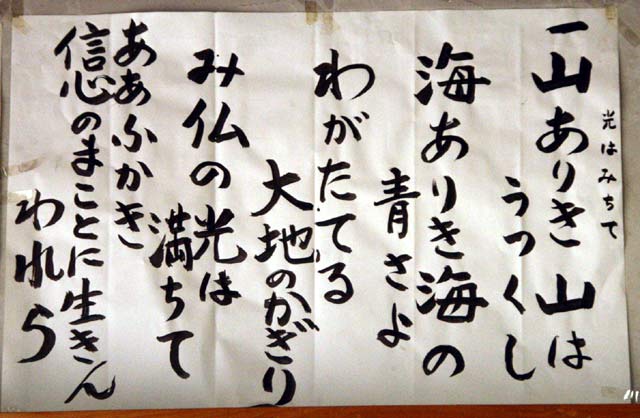 光はみちて
一 山ありき 山は
うつくし
海ありき海の
青さよ
わがたてる
大地のかぎり
み仏の光は
満ちて
ああふかき
信心のまことに生きん
われら